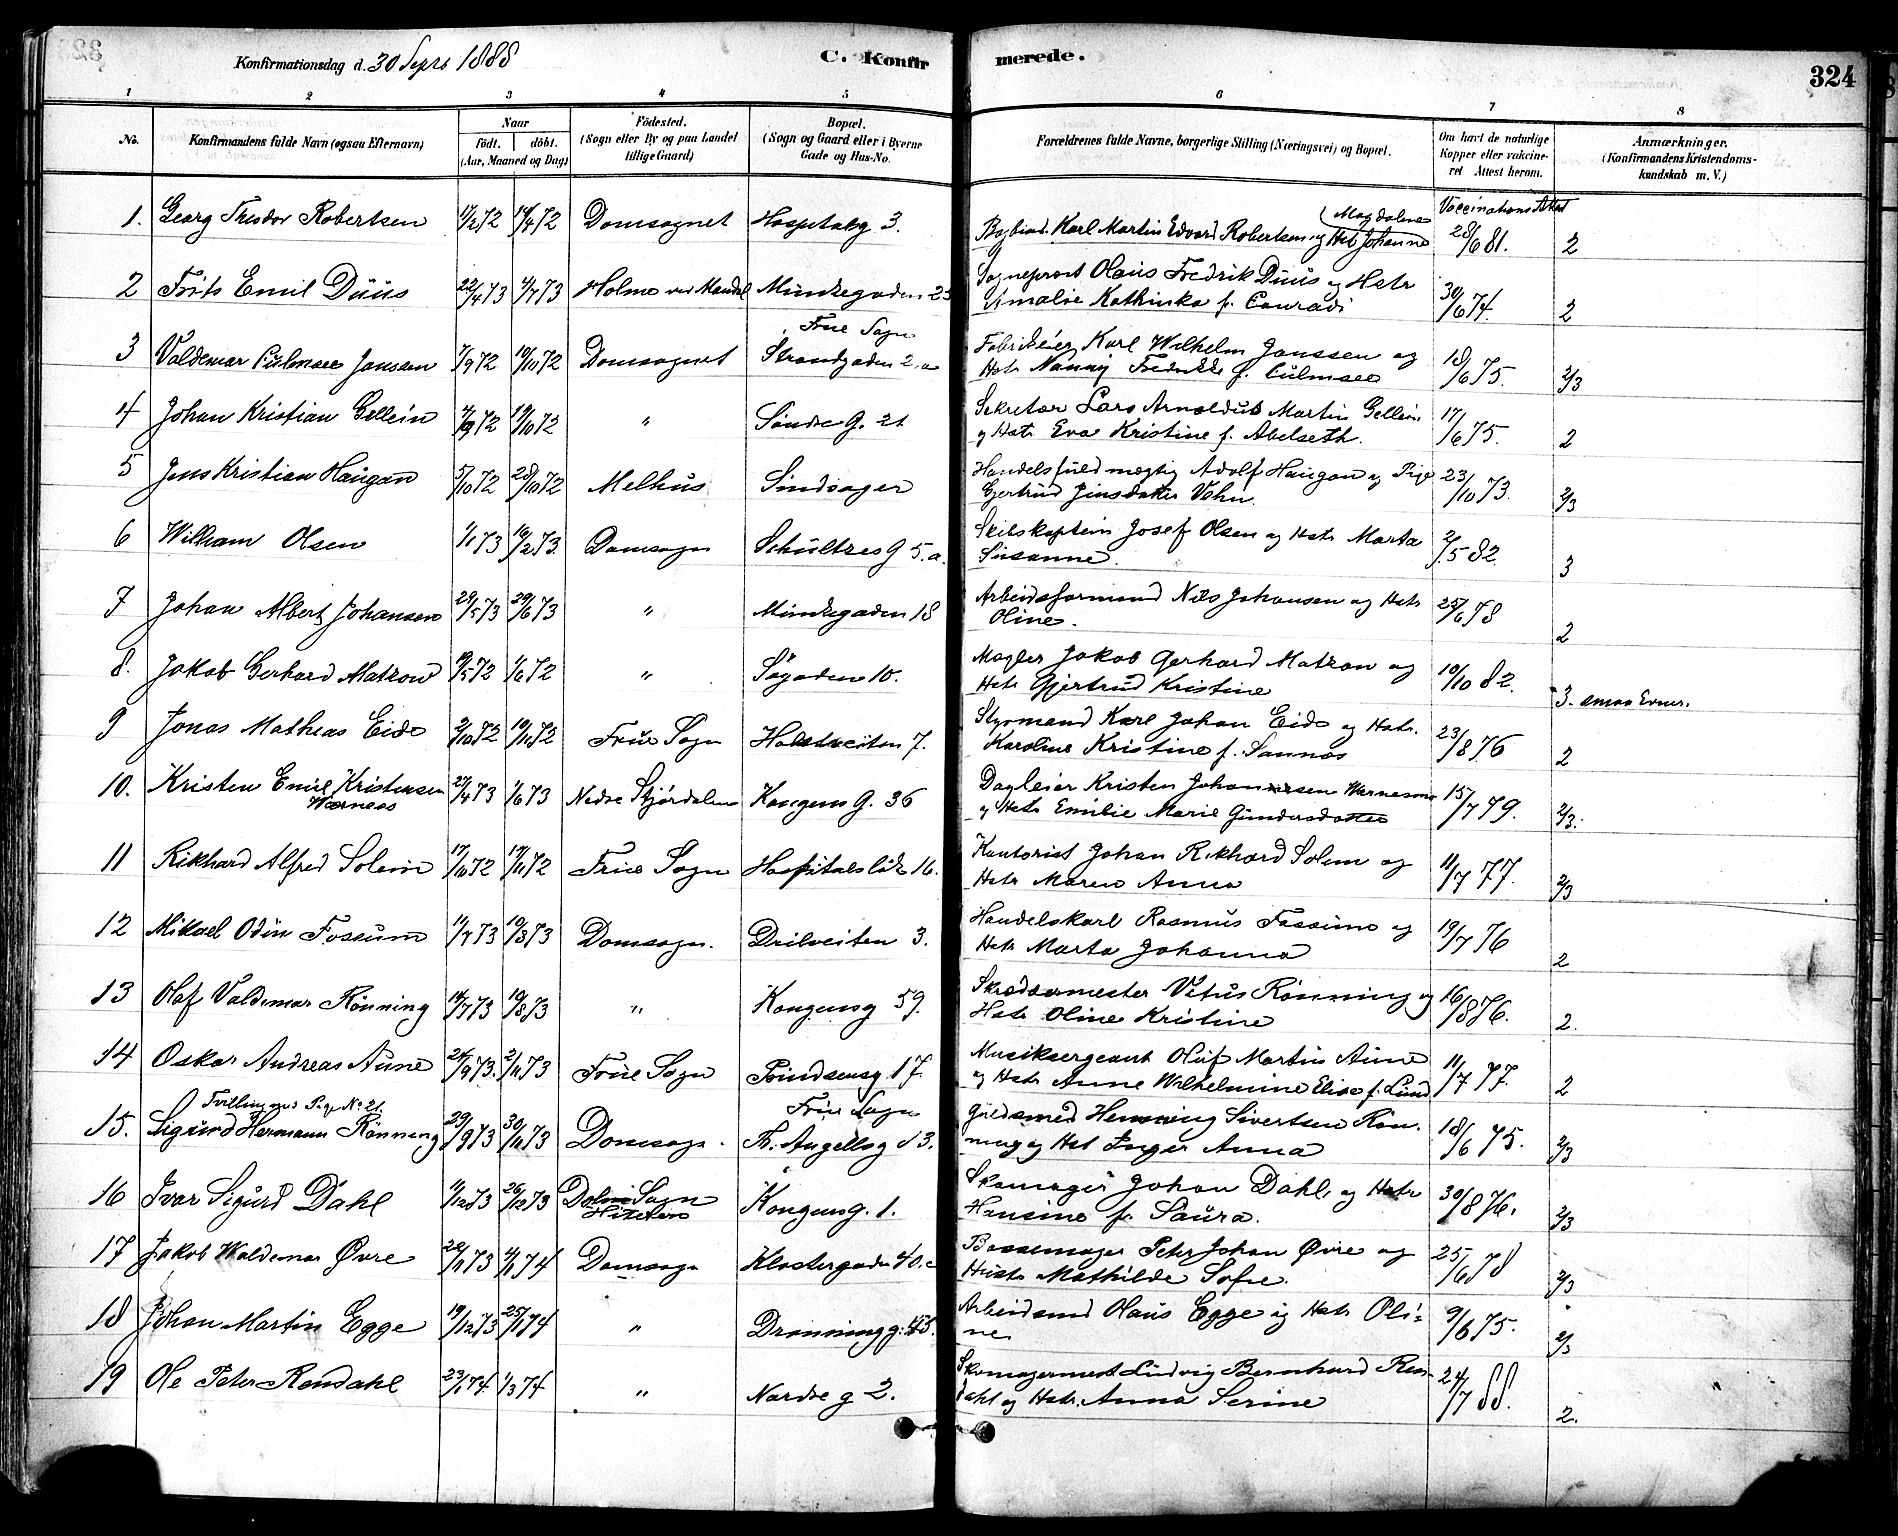 Konfirmationsdag d. 30 Septr 1888 C. Konfirmerede. 324
1 2 3 4 5 6 7 8
No. Konfirmandens fulde Navn (ogsaa Efternavn) Naar födt. döbt. (Aar, Maaned og Dag) Födested. (Sogn eller By og paa Landet tillige Gaard) Bopæl. (Sogn og Gaard eller i Byerne Gade og Hus-No. Forældrenes fulde Navne, borgerlige Stilling (Næringsvei) og Bopæl. Om havt de naturlige Kopper eller vakcineret Attest herom. Anmærkninger. (Konfirmandens Kristendomskundskab m. V.)
Vaccinations Attest
1. Georg Theodor Robertsen 17/2 72 14/4 72 Domsognet Hospitalsg 3. Bogbind. Karl Martin Edvard Robertsen og Hstr Johanne (Magdalena 28/6 81. 2
2 Frits Emil Düus 22/4 73 4/7 73 Holme ved Mandal Munkegaden 23 Sogneprest Olaus Fredrik Düus og Hstr
Amalie Kathinka f. Conradi 30/6 74. 2
3 Valdemar Culmsee Jansen 7/9 72 19/10 72 Domsognet Frue Sogn
Strandgaden 2.a Fabrikeier Karl Wilhelm Janssen og
Hstr Nanny Fredrikke f. Culmsee 18/6 75. 2/3
4 Johan Kristian Gellein 7/9 72 19/10 72 " Søndre G. 21 Sekretær Lars Arnoldus Martin Gellein
og Hstr Eva Kristine f. Abelseth. 17/6 75. 2
5 Jens Kristian Haugan 5/10 72 28/10 72 Melhus Sindsager Handelsfuldmægtig Adolf Haugan og Pige
Gjertrud Jensdatter Vohn. 23/10 73. 2/3
6 William Olsen 1/1 73 19/2 73. Domsogn Schultzes G 5.a. Skibskaptein Josef Olsen og Hstr Marta
Susanne. 2/5 82 3
7 Johan Albert Johansen 29/5 73 29/6 73 " Munkegaden 18 Arbeidsformand Nils Johansen og Hstr
Oline. 25/6 78 2
8. Jakob Gerhard Matzow 1/6 72 " Søgaden 10. Mægler Jakob Gerhard Matzow og
Hstr Gjertrud Kristine 10/10 82. 3 - smaa Evner.
9 Jonas Mathias Eide 2/10 72 19/11 72 Frue Sogn 7. Styrmand Karl Johan Eide og Hstr.
Karoline Kristine f. Sannos 23/8 76 2
10. Kristen Emil Kristensen
Wærnæs 27/4 73 1/6 73 Nedre Stjørdalen Kongens G. 36 Dagleier Kristen Johansen
og Hstr Emilie Marie Gundersdatter 15/7 79. 2/3.
11 Rikhard Alfred Solem 17/10 72 17/11 72 Frue Sogn Hospitalsløk 16. Kontorist Johan Rikhard Solem og
Hstr Maren Anna 11/7 77. 2/3
12 Mikael Odin Fossum 19/3 73 Domsogn. Drilveiten 3. Handelskarl Rasmus Fossum og
Hstr Marta Johanna 19/7 76 2
13 Olaf Valdemar Rønning 14/7 73 19/8 73 " Kongensg 59. Skræddermester Vitus Rønning og
Hstr Oline Kristine 16/8 76. 2.
14 Oskar Andreas Aune 24/9 73. 2/11 73 Frue Sogn Prindsensg 17. Musiksergeant Oluf Martin Aune
og Hstr Anne Wilhelmine Elise f. Lund 11/7 77. 2
15. Tvilling med Pige No 21.
Sigurd Hermann Rønning 29/9 73 30/11 73 Domsogn. Frue Sogn
Th. Angellsg 13. Guldsmed Henning Sivertsen Røn-
ning og Hst Inger Anna 18/6 75. 2/3
16 Ivar Sigurd Dahl 11/12 73 26/12 73 Dolm Sogn
Hitteren Kongensg. 1. Skomager Johan Dahl, og Hstr
Hansine f. Saura. 30/8 76. 2/3
17 Jakob Waldemar Øvre 22/11 73 4/1 74 Domsogn Klostergaden 40.c Bøssemager Peter Johan Øvre og
Hustr Mathilde Sofie. 25/6 78 2/3
18 Johan Martin Egge 19/12 73 25/1 74 " Dronningg. 45. Arbeidsmd Olaus Egge og Hstr Oli-
ne 9/6 75. 2/3
19 Ole Peter Rendahl 23/1 74 1/3 74 " Nordre g 2. Skomagermest Ludvig Bernhard Ren-
dahl og Hstr. Anna Serine 24/7 88. 2.